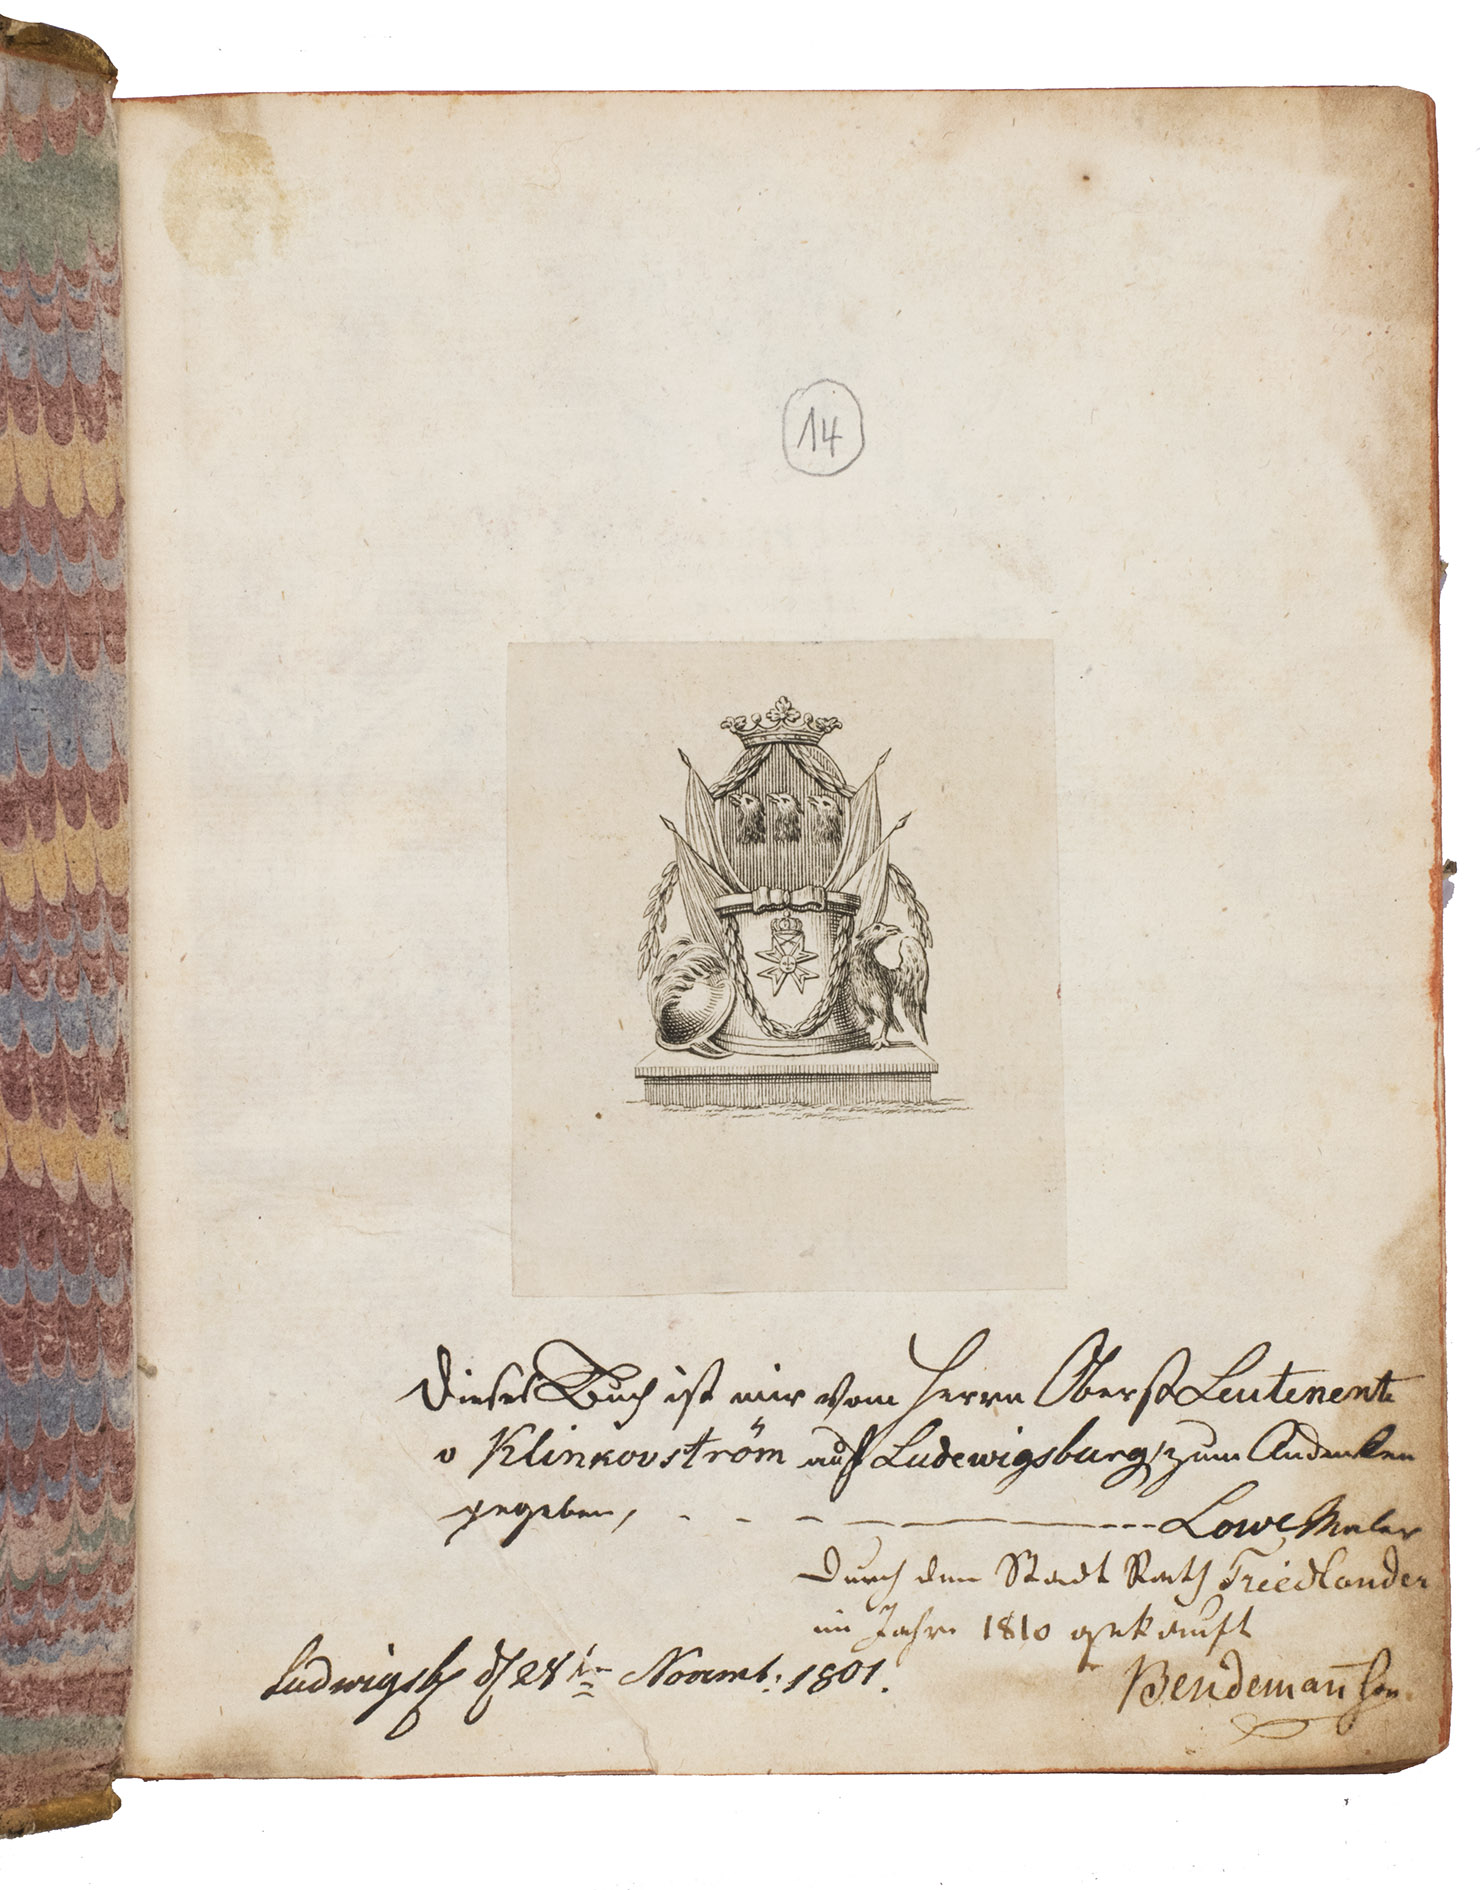 14
Dieses Buch ist mir vom Herrn Oberst Leutenent
v Klinkovström auf Ludewigsburg, zum Andenken
gegeben, - - - ——— --- Lowe Maler
Durch den Stadt Rath Friedlander
im Jahre 1810 gekauft
Ludwigsb d 28 Novemb: 1801.
Bendemañ